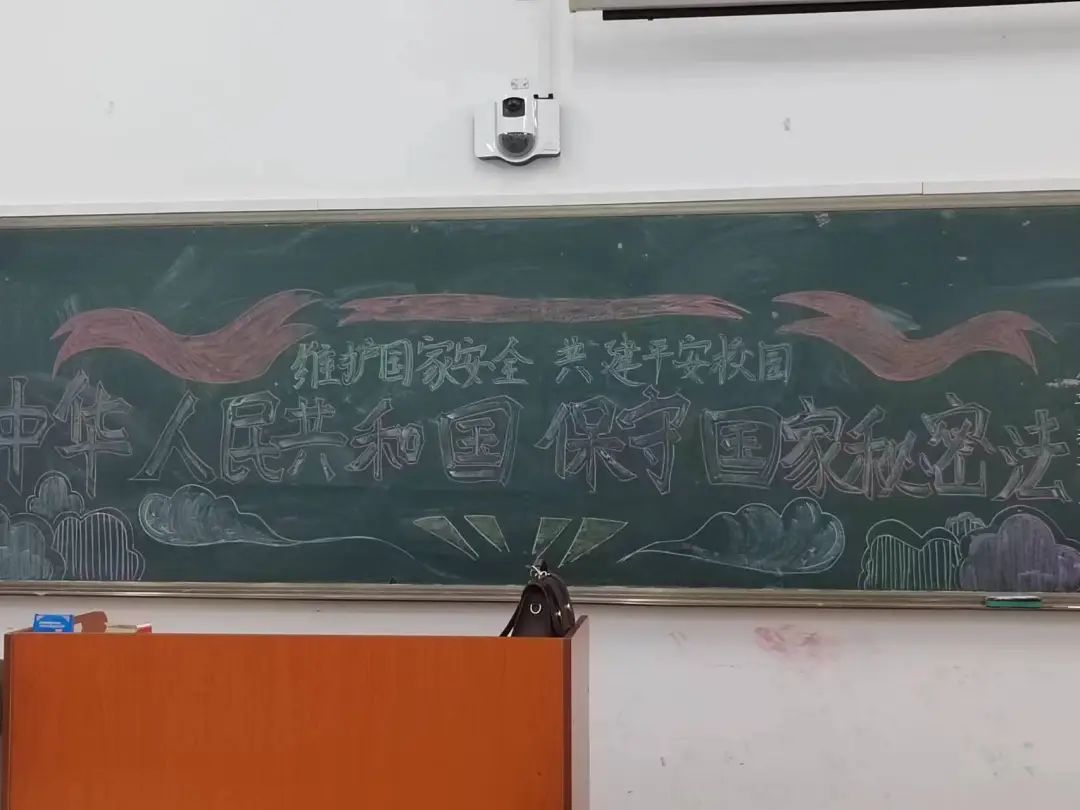 维护国家安全 共建平安校园
中华人民共和国保守国家秘密法